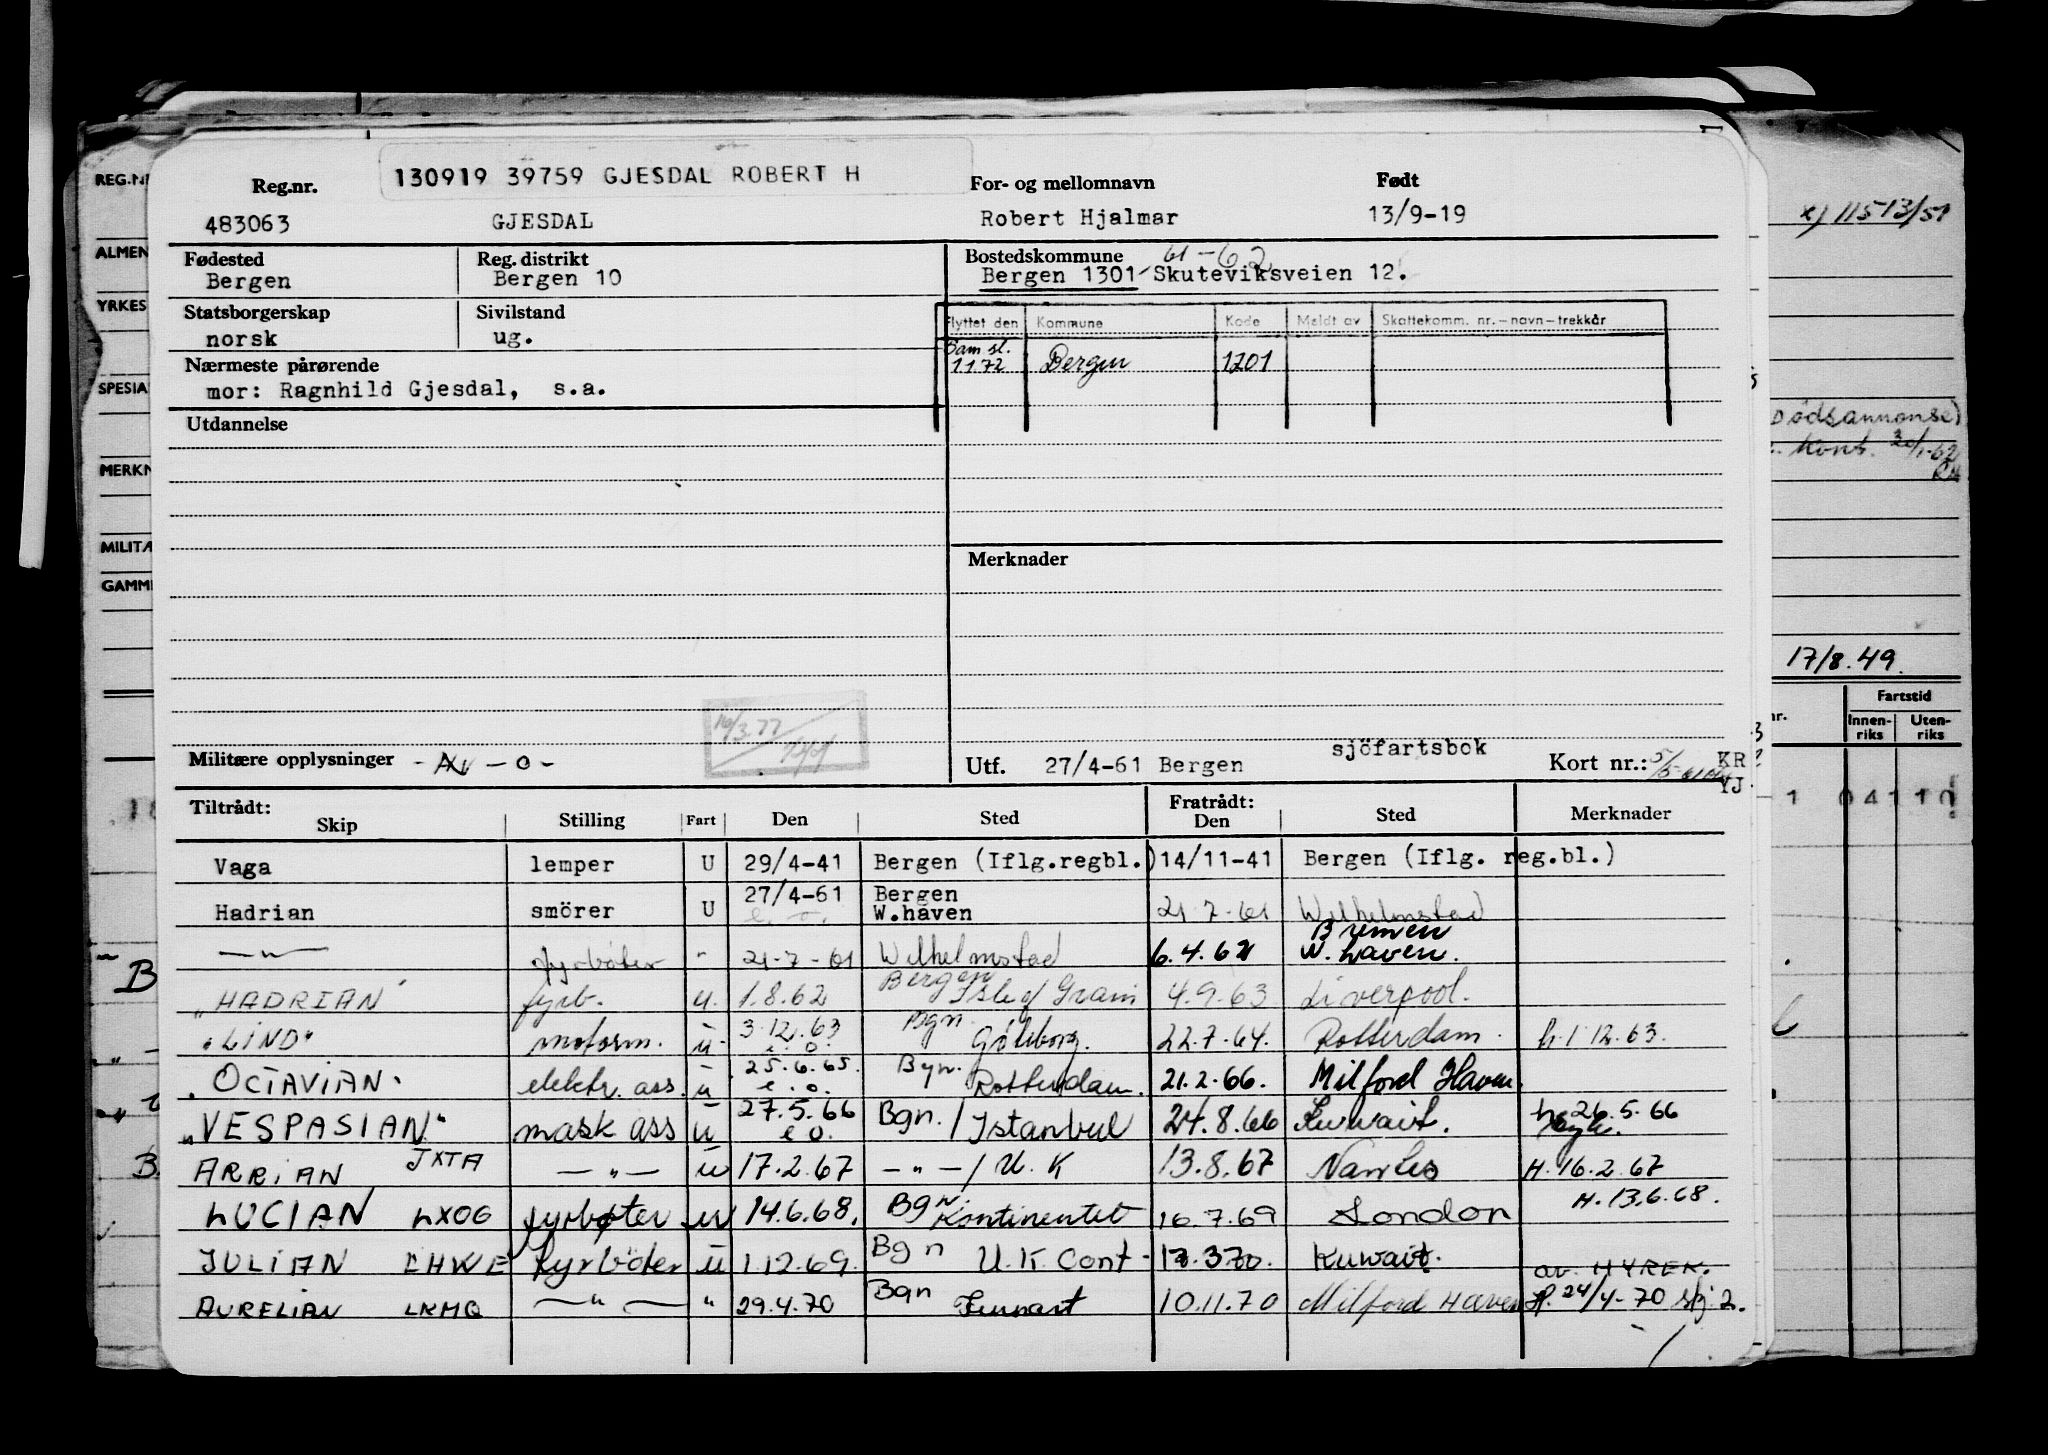 130919 39759 GJESDAL ROBERT H
Reg.nr. For- og mellomnavn Født
483063 GJESDAL Robert Hjalmar 13/9-19
Fødested Reg. distrikt Bostedskommune 61-62
Bergen Bergen 10 Bergen 1301 Skuteviksveien 12.
Statsborgerskap Sivilstand
norsk ug.
Flyttet den Kommune Kode Meldt av Skattekomm. nr.-navn-trekkår
Sam sl.
1172 Bergen 1201
Nærmeste pårørende
mor: Ragnhild Gjesdal, s.a.
Utdannelse
Merknader
16/3.77
Militære opplysninger - Av - o -
Utf. 27/4-61 Bergen sjöfartsbok Kort nr.: KR
YJ
Tiltrådt: Fratrådt:
Skip Stilling Fart Den Sted Den Sted Merknader
Vaga lemper U 29/4-41 Bergen (Iflg.regbl.) 14/11-41 Bergen (Iflg. reg.bl.)
27/4-61 Bergen
Hadrian smörer U e. o. W.haven 21-7-61 Wilhelmstad
Bremen
—"— fyrböter " 21-7-61 Wilhelmstad 6.4.62 W. haven.
Bergen
"HADRIAN" fyrb. u. 1.8.62 Isle of Grain 4.9.63 Liverpool.
3.12.63 Bgn.
"LIND" motorm. u e.o. Göteborg. 22.7.64. Rotterdam. h. 1 12.63.
25.6.65. Bgn.
"OCTAVIAN" elektr. ass. u e.o. Rotterdam. 21.2.66. Milford Haven.
27.5.66 h 26.5.66
"VESPASIAN" mask ass u e o. Bgn. / Istanbul 24.8.66 Kuwait.
ARRIAN JXTA —"— u 17.2.67 —"—/ U. K 13.8.67 H. 16.2.67
LUCIAN LXOG fyrbøter u 14.6.68. Bgn. Kontinentet 16.7.69 London H. 13.6.68.
JULIAN LHWE fyrböter u 1.12.69. Bgn U.K. Cont - 17.3.70. Kuwait.
av. HYREK.
AURELIAN LKMQ —"— " 29.4.70 Bgn 10.11.70 Milford Haven H. 24/4-70 sj. 2.
REG.NR
ALMEN
YRKES
SPESIA
MERKN
MILITÆ
GAMM
x) 11513/51
Dödsannonse)
Kont. 30/1-62
17/8.49.
Fartstid
nr. Innen-riks Uten-riks
1 04 11 10
B
B.